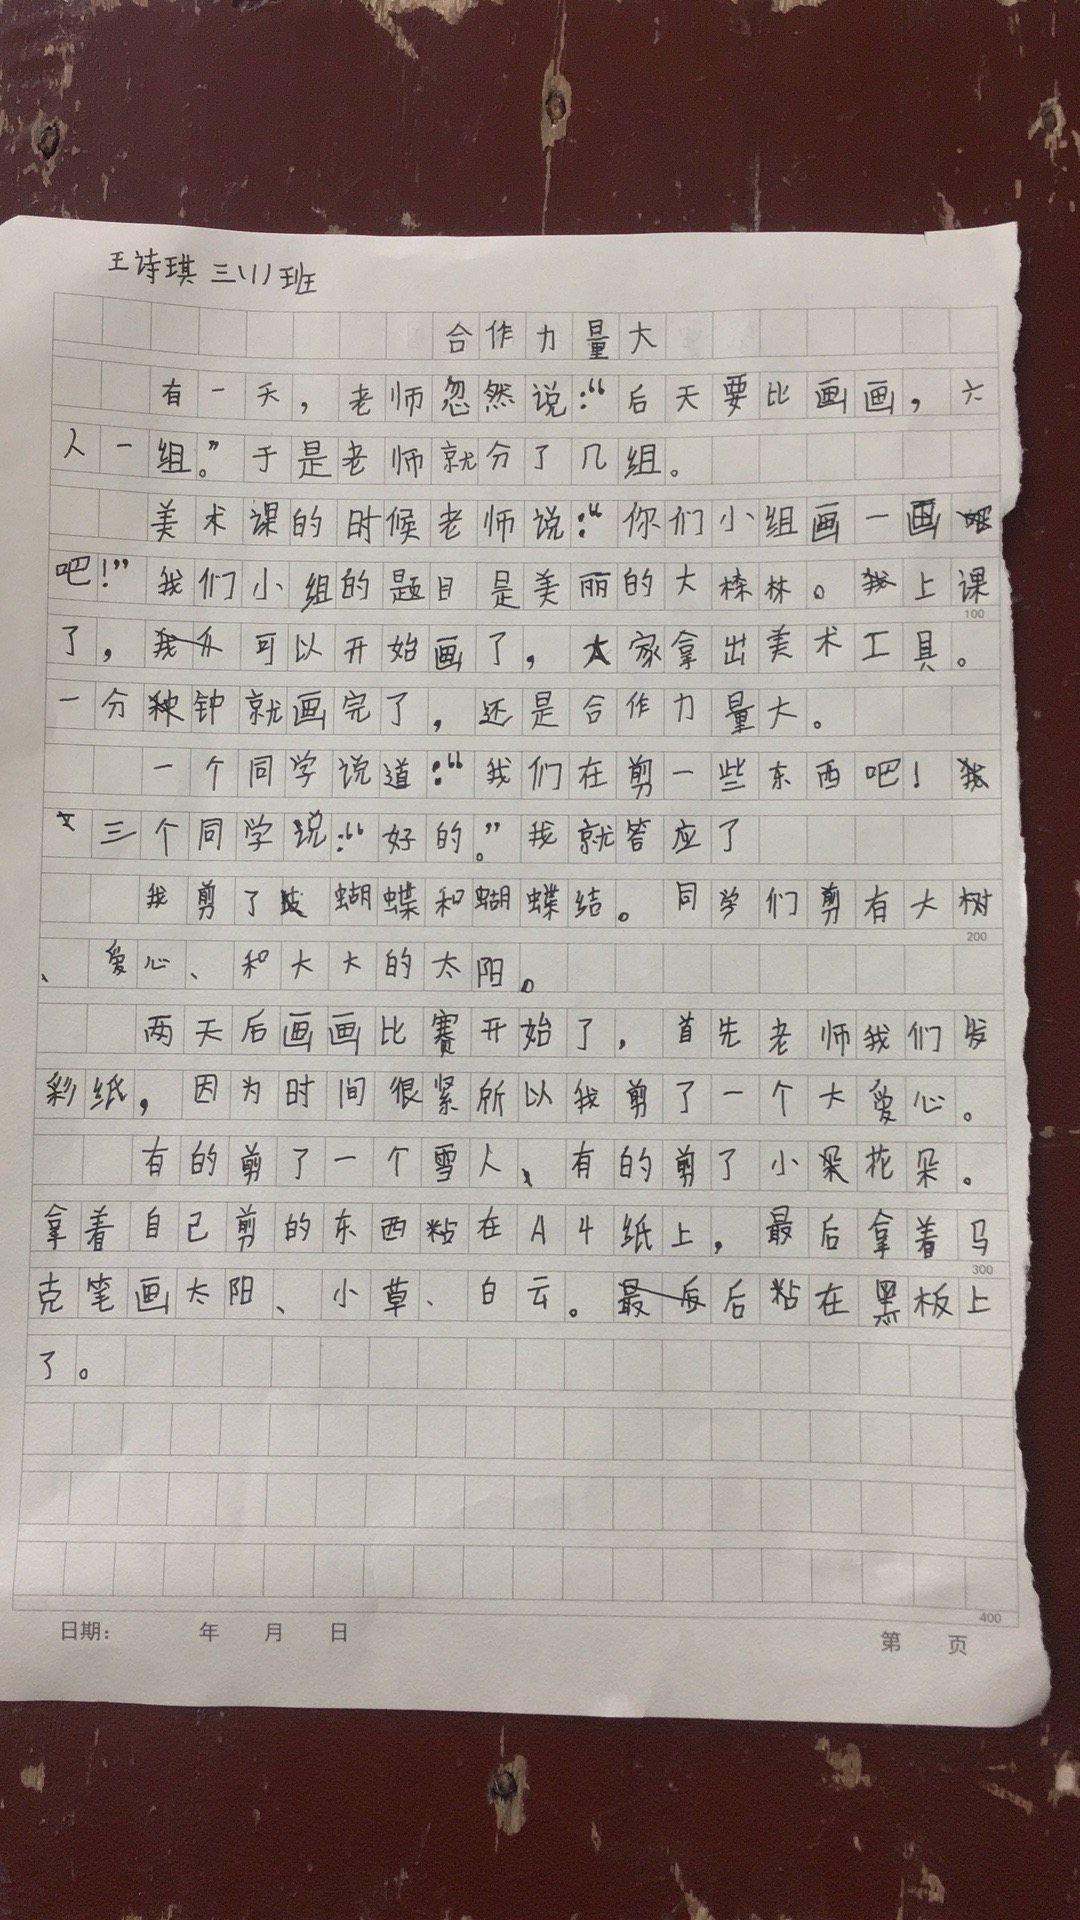 王诗琪 三(1)班
合作力量大
有一天，老师忽然说：“后天要比画画，六
人一组。”于是老师就分了几组。
美术课的时候老师说：“你们小组画一画
吧！”我们小组的题目是美丽的大森林。上课
了，可以开始画了，大家拿出美术工具。
一分秧钟就画完了，还是合作力量大。
一个同学说道：“我们在剪一些东西吧！
三个同学说：“好的。”我就答应了
我剪了蝴蝶和蝴蝶结。同学们剪有大树
、爱心、和大大的太阳。
两天后画画比赛开始了，首先老师我们发
彩纸，因为时间很紧所以我剪了一个大爱心。
有的剪了一个雪人、有的剪了小朵花朵。
拿着自己剪的东西粘在A4纸上，最后拿着马
克笔画太阳、小草、白云。后粘在黑板上
了。
100
200
300
400
日期： 年 月 日
第 页